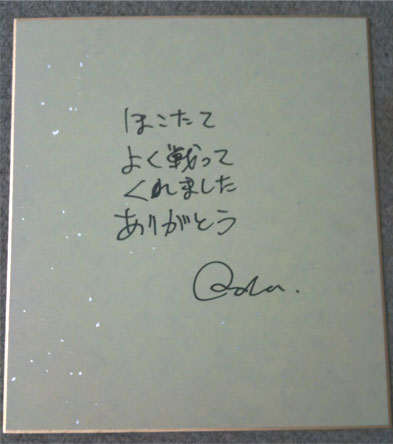 ほこたて
よく戦って
くれました
ありがとう